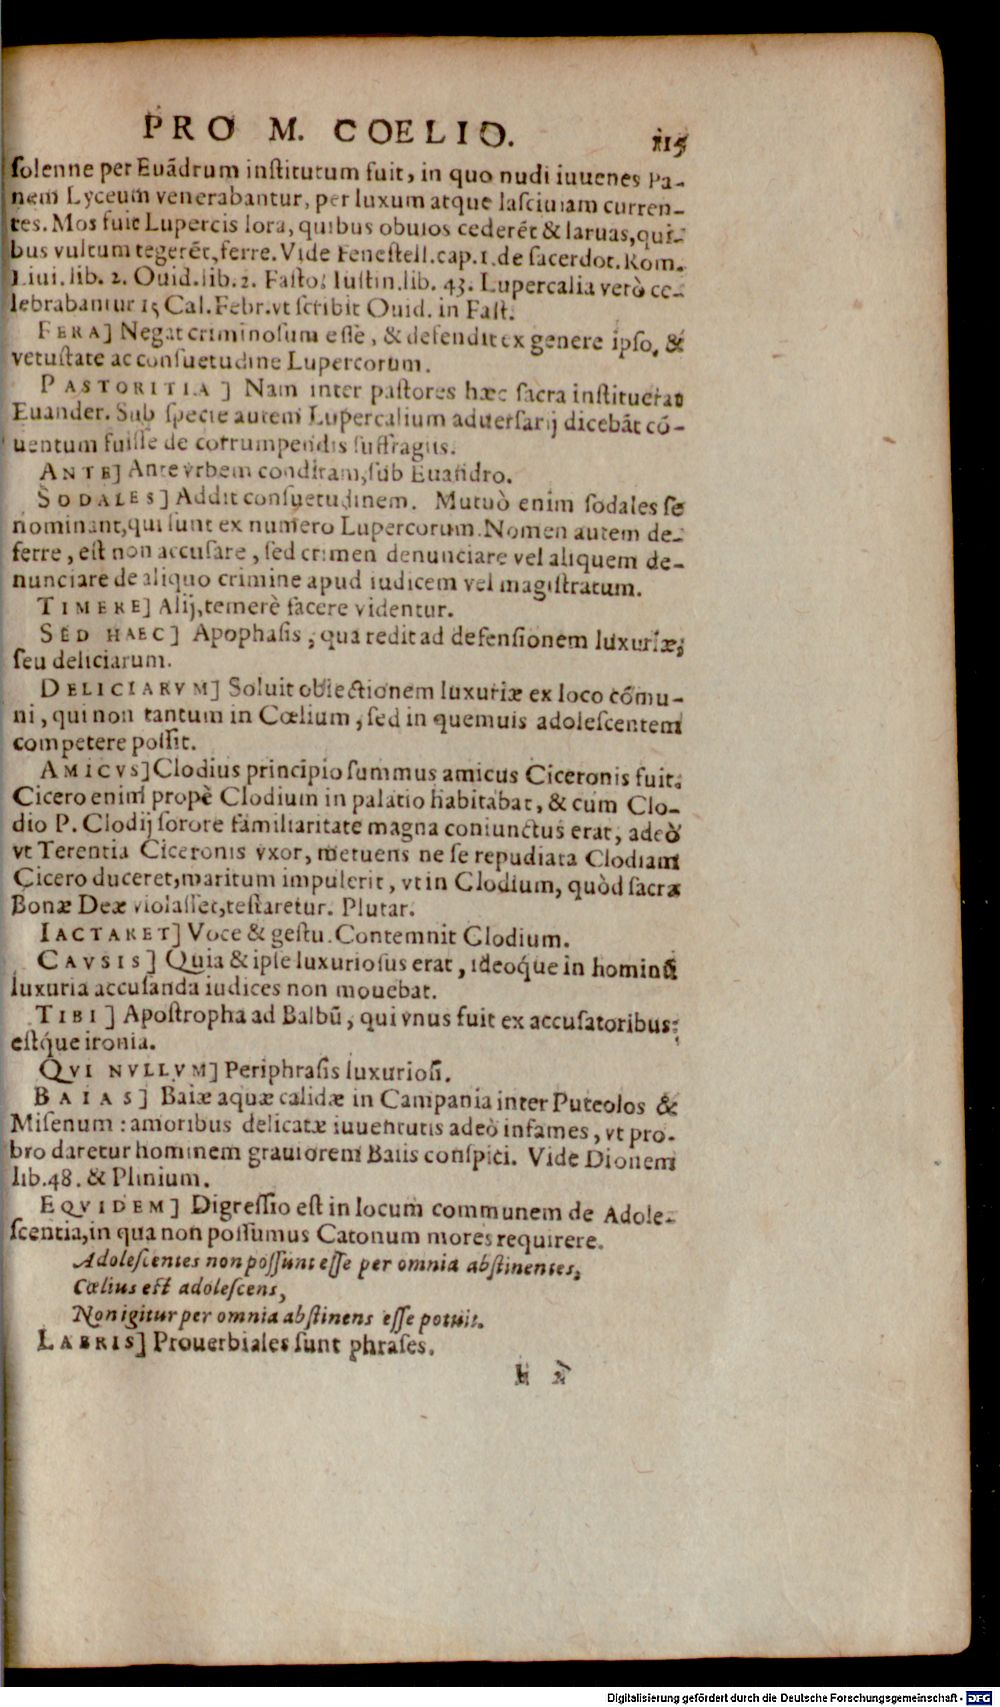 PRO M. COELIO. 115
ſolenne per Euãdrum inſtitutum fuit, in quo nudi iuuenes Pa-
nem Lyceum venerabantur, per luxum atque laſciuiam curren-
tes. Mos fuit Lupercis lora, quibus obuios cederẽt & laruas, qui-
bus vultum tegerẽt, ferre. Vide Feneſtell. cap. 1. de ſacerdot. Rom.
Liui. lib. 2. Ouid. lib. 2. Faſto. Iuſtin. lib. 43. Lupercalia verò ce-
lebrabantur 15 Cal. Febr. vt ſcribit Ouid. in Faſt.
FERA] Negat criminoſum eſſe, & defendit ex genere ipſo, &
vetuſtate ac conſuetudine Lupercorum.
PASTORITIA] Nam inter paſtores hæc ſacra inſtituerat
Euander. Sub ſpecie autem Lupercalium aduerſarij dicebãt cõ-
uentum fuiſſe de corrumpendis ſuffragiis.
ANTE] Ante vrbem conditam, ſub Euandro.
SODALES] Addit conſuetudinem. Mutuò enim ſodales ſe
nominant, qui ſunt ex numero Lupercorum. Nomen autem de-
ferre, eſt non accuſare, ſed crimen denunciare vel aliquem de-
nunciare de aliquo crimine apud iudicem vel magiſtratum.
TIMERE] Alij, temerè facere videntur.
SED HAEC] Apophaſis, qua redit ad defenſionem luxuriæ,
ſeu deliciarum.
DELICIARVM] Soluit obiectionem luxuriæ ex loco cõmu-
ni, qui non tantum in Cœlium, ſed in quemuis adoleſcentem
competere poſſit.
AMICVS] Clodius principio ſummus amicus Ciceronis fuit.
Cicero enim propè Clodium in palatio habitabat, & cum Clo-
dio P. Clodij ſorore familiaritate magna coniunctus erat, adeò
vt Terentia Ciceronis vxor, metuens ne ſe repudiata Clodiam
Cicero duceret, maritum impulerit, vt in Clodium, quòd ſacra
Bonæ Deæ violaſſet, teſtaretur. Plutar.
IACTARET] Voce & geſtu. Contemnit Clodium.
CAVSIS] Quia & ipſe luxurioſus erat, ideoq́ue in hominũ
luxuria accuſanda iudices non mouebat.
TIBI] Apoſtropha ad Balbũ, qui vnus fuit ex accuſatoribus:
eſtq́ue ironia.
QVI NVLLVM] Periphraſis luxurioſi.
BAIAS] Baiæ aquæ calidæ in Campania inter Puteolos &
Miſenum: amoribus delicatæ iuuentutis adeò infames, vt pro-
bro daretur hominem grauiorem Baiis conſpici. Vide Dionem
lib. 48. & Plinium.
EQVIDEM] Digreſſio eſt in locum communem de Adole-
ſcentia, in qua non poſſumus Catonum mores requirere.
Adoleſcentes non poſſunt eſſe per omnia abſtinentes,
Cœlius eſt adoleſcens,
Non igitur per omnia abſtinens eſſe potuit.
LABRIS] Prouerbiales ſunt phraſes.
H 2
Digitalisierung gefördert durch die Deutsche Forschungsgemeinschaft - DFG